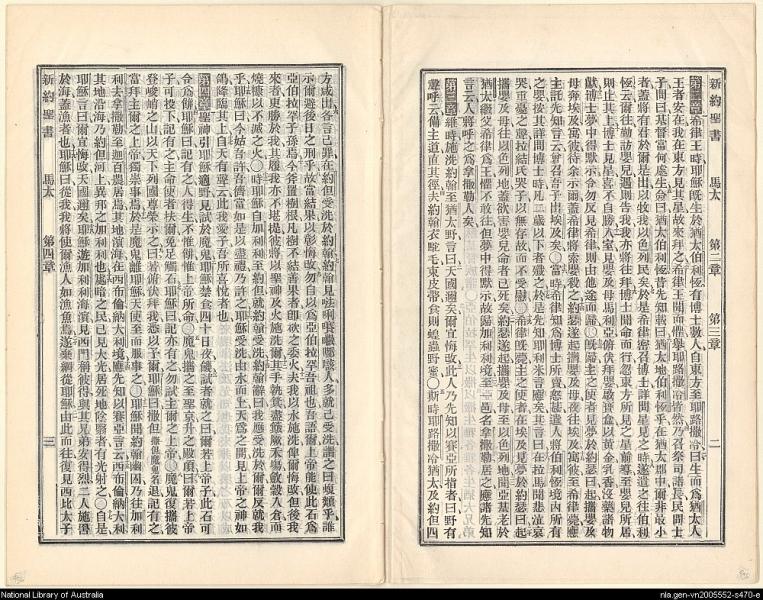 新約聖書 馬太 第二章 第三章 二
第二章希律王時耶穌旣生於猶太伯利恆有博士數人自東方至耶路撒冷曰生而爲猶太人
王者安在我在東方見其星故來拜之希律王聞而懼舉耶路撒冷皆然乃召祭司諸長民間士
子問曰基督當何處生僉曰猶太伯利恆昔先知載曰猶太地伯利恆乎在猶太郡中爾非最小
者蓋將有君於爾是出以牧我以色列民矣於是希律密召博士詳問星見之時遂遣之往伯利
恆云爾往勤訪嬰兒遇則告我我亦將往拜博士聞命而行忽東方所見之星前導至嬰兒所居
則止其上博士見星喜不自勝入室見嬰及母馬利亞俯伏拜嬰啟寶盒以黃金乳香沒藥諸物
獻博士夢中得默示令勿反見希律則由他途而歸〇旣歸主之使者見夢於約瑟曰起攜嬰及
母奔埃及寓彼待余示爾蓋希律將索嬰殺之約瑟遂起攜嬰及母夜往埃及寓彼至希律薨應
主託先知言云曾召吾子出埃及矣〇當時希律知爲博士所賣怒甚遣人將伯利恆境內所有
之嬰依其詳問博士時凡二歲以下者殲之於是先知耶利米言應矣其言曰在拉馬聞悲泣哀
哭甚憂之聲拉結氏哭子以無存故而不受慰〇希律旣薨主之使者在埃及見夢於約瑟曰起
攜嬰及母往以色列地蓋欲害嬰兒命者已死矣約瑟遂起攜嬰及母至以色列地聞亞基老於
猶太繼父希律爲王懼不敢往但夢中得默示故歸加利利境至一邑名拿撒勒居之應諸先知
言云人將呼之爲拿撒勒人矣
第三章維時施洗約翰至猶太野言曰天國邇矣爾宜悔改此人乃先知以賽亞所指者曰野有
聲呼云備主道直其徑夫約翰衣駝毛束皮帶食則蝗蟲野蜜〇斯時耶路撒冷猶太及約但四
方咸出各言己罪在約但受洗於約翰約翰見人多就己受洗謂之曰蝮類乎誰
示爾避後日之刑乎故當結果以彰悔改勿自以爲亞伯拉罕吾祖也吾語爾上帝能使此石爲
亞伯拉罕子孫焉今斧置樹根凡樹不結善果者卽斫之委火夫我以水施洗俾爾悔改但後我
來者更勝於我其履我亦不堪提彼將以聖神及火施洗爾其手執箕盡簸厥禾場斂穀入倉而
燒糠以不滅之火〇時耶穌自加利利至約但就約翰受洗約翰辭曰我應受洗於爾爾反就我
乎耶穌曰今姑吾許吾儕當如是以盡禮乃許之耶穌受洗由水而上天爲之開見上帝之神如
鴿降臨其上自天有聲云此我愛子吾所喜悅者也
第四章聖神引耶穌適野見試於魔鬼耶穌禁食四十日夜餓試者就之曰爾若上帝子此石可
令爲餅耶穌曰記有之人得生不惟餅惟上帝所命〇魔鬼攜之至聖京升之殿頂曰爾若上帝
子可投下記有之主命使者扶爾免足觸石耶穌曰記亦有之勿試主爾之上帝〇魔鬼復攜彼
登峻峭之山以天下列國尊榮示之曰若俯伏拜我悉以予爾耶穌曰撒但撒但魔鬼名退記有之
當拜主爾之上帝獨崇事焉於是魔鬼離耶穌天使至而服事之〇耶穌聞約翰幽囚乃往加利
利去拿撒勒至迦百農居焉其地濱海在西布倫納大利境應先知以賽亞言云西布倫納大利
其地沿海乃約但河上異邦之加利利也處暗之民已見大光居死地陰翳者有光射之〇自是
耶穌言曰爾宜悔改天國邇矣耶穌遊加利利海濱見西門稱彼得與其兄弟安得烈二人施罟
於海蓋漁者也耶穌曰從我我將使爾漁人如漁魚焉遂棄網從耶穌由此而往復見西比太子
新約聖書 馬太 第四章 三
National Library of Australia
nla.gen-vn2005552-s470-e